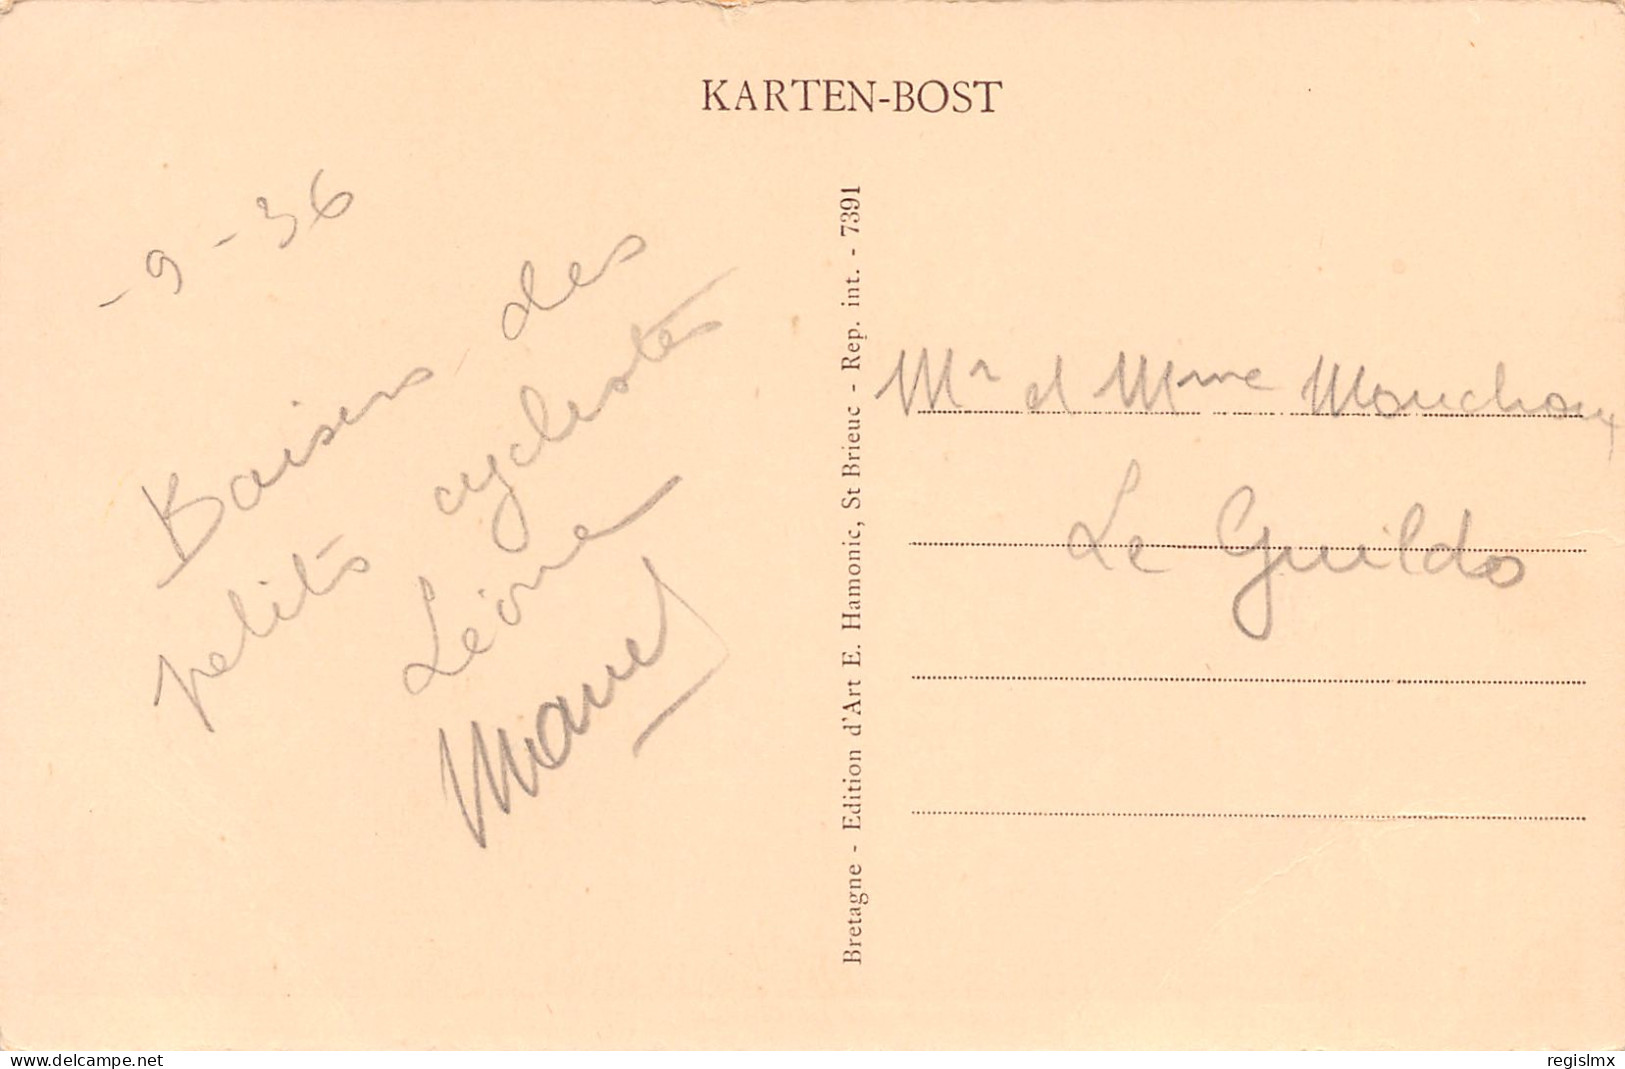 KARTEN-BOST
- 9 - 36
Baisers des
petits cyclistes
Léone
Marcel
Bretagne - Edition d'Art E. Hamonic, St Brieuc - Rep. int. - 7391
Mr et Mme Mouchoux
Le Guildo
www.delcampe.net
regislmx